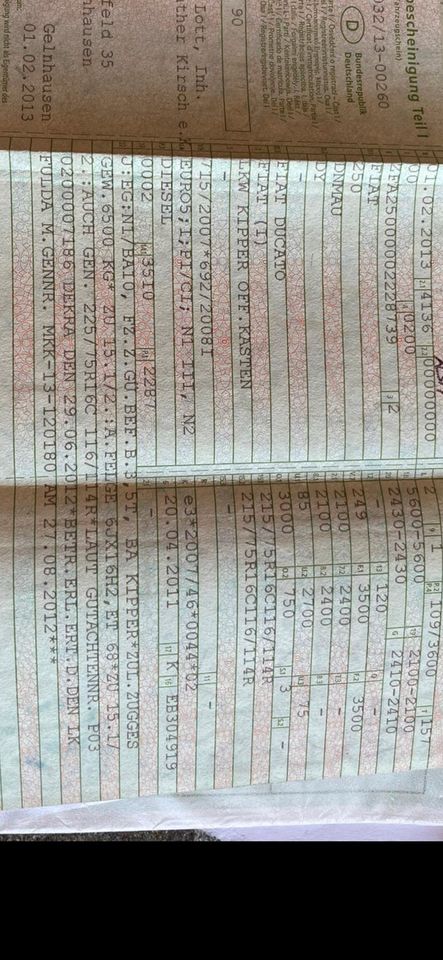 bescheinigung Teil I
Fahrzeugschein)
D
Bundesrepublik
Deutschland
032/13-00260
90
Lott, Inh.
ather Kirsch e.
feld 35
nhausen
Gelnhausen
01.02.2013
.02.2013 4136 00000000
0200
FA25000002228739 2
FIAT
250
DNMAU
DY
-
FIAT DUCATO
FIAT (I)
LKW KIPPER OFF.KASTEN
-
715/2007*692/2008I
EURO5;I;PI/CI; N1 III, N2
DIESEL
0002 3510 2287
2 1 109/3600 157
5600-5600 2100-2100
2430-2430 2410-2410
- 120 -
249 3500 3500
2100 2400 -
2100 2400 -
85 2700 75
3000 750 3 -
215/75R16C116/114R
215/75R16C116/114R
-
-
e3*2007/46*0044*02
20.04.2011 K EB304919
-
J:EG:N1/BA10, FZ.Z.GÜ.BEF.B.3,5T, BA KIPPER*ZUL.ZUGGES
.GEW.6500 KG* ZU 15.1/2.:A.FELGE 6JX16H2,ET 68*ZU 15.1/
2.:AUCH GEN. 225/75R16C 116/114R*LAUT GUTACHTENNR. P03
0200007186 DEKRA DEN 29.06.2012*BETR.ERL.ERT.D.DEN LK
FULDA M.GENNR. MKK-13-120180 AM 27.08.2012***